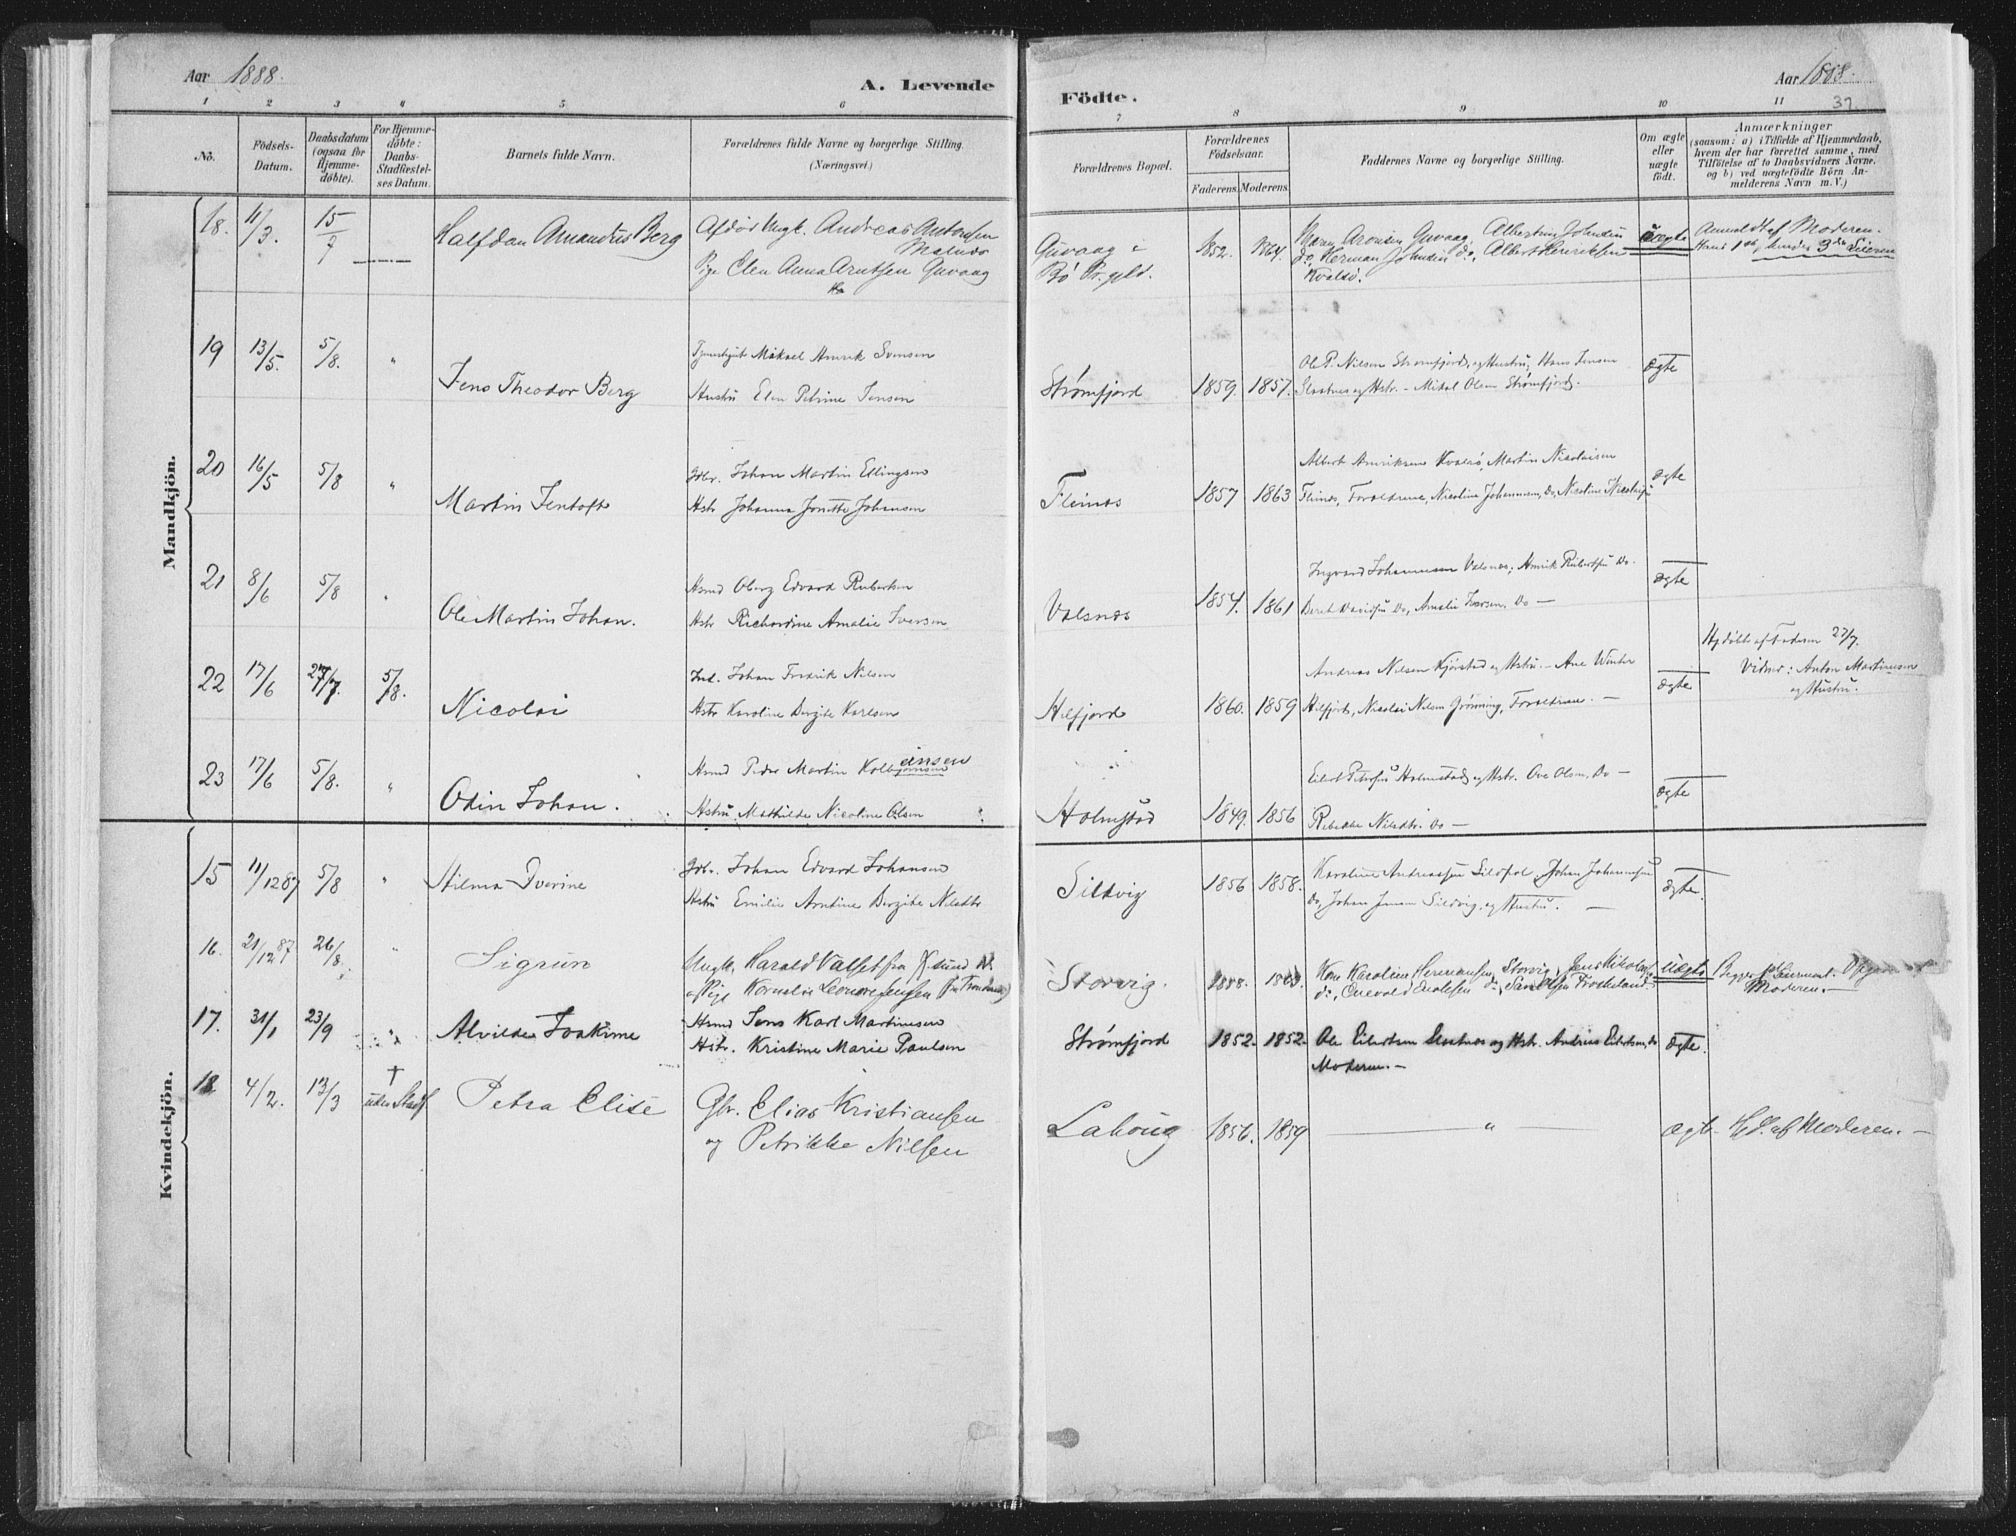 Aar 1888.
A. Levende
Födte.
Aar 1888.
37.
1 2 3 4 5 6 7 8 9 10 11
No.
Födsels-Datum.
Daabsdatum (ogsaa for Hjemmedöbte).
For Hjemmedöbte: Daabs-Stadfæstelses Datum.
Barnets fulde Navn.
Forældrenes fulde Navne og borgerlige Stilling.
(Næringsvei.)
Forældrenes Bopæl.
Forældrenes Födselsaar.
Faderens. Moderens.
Faddernes Navne og borgerlige Stilling.
Om ægte eller uægte födt.
Anmærkninger
(saasom: a) i Tilfælde af Hjemmedaab, hvem der har forrettet samme, med Tilföielse af to Daabsvidners Navne. og b) ved uægtefödte Börn Anmelderens Navn m. V.)
Mandkjön.
18. 11/3. 15/7 Halfdan Amandus Berg Afdöd Ungk. Andreas Antonsen Malnæs
Pige Elen Anna Arntsen Guvaag
Guvaag i Bö Pr.gld. 1852. 1864. Aronsen Guvaag, Albertine Johnsen
do, Herman Johnsen do, Albert Henriksen Kvalsö.
uægte Anmeldt af Moderen.
Hans 1ste, hendes 3die Leierm.
19 13/5. 5/8. " Jens Theodor Berg Mikael Amrik Svensen
Hustru Elen Petrine Jensen
Strømfjord 1859. 1857. Ole P. Nilsen Strømfjord og Hustru, Hans Jensen
og Hstr. - Mikal Olsen Strømfjord.
ægte
20 16/5 5/8 " Martin Jentoft Gbr. Johan Martin Ellingsen
Hstr Johanna Jonette Johansen
Fleines 1857 1863 Albert Amriksen Kvalsø, Martin Nicolaisen
Fleines, Forældrene, Nicoline Johannesen, do, Nicoline Nicolaisen
ægte
21 8/6 5/8 " Ole Martin Johan. Hsmd Oberg Edvard Robertsen
Hstr Richardine Amalie Iversen
Valsnes 1854. 1861 Ingvard Johannesen Valsnes, Amrik Robertsen Do.
Berit Davidsen Do, Amalie Iversen, Do —
ægte
22 17/6 27/7. 5/8. Nicolai Ind. Johan Fredrik Nilsen
Hstr Karoline Bergite Karlsen
Hilfjord 1860. 1859 Andreas Nilsen Kjørstad og Hstru. - Ane Winter
Hilfjord, Nicolai Nilsen Grønning, Forældrene. —
ægte Hjdøbt af Faderen 27/7.
Vidner: Anton Martinusen
og Hustru.
23 17/6 5/8. " Odin Johan. Hsmd Peder Martin Kolbeinsen
Hstru Mathilde Nicoline Olsen
Holmstad 1849. 1856 Eilert Petersen Holmstad og Hstr. Ove Olsen, Do —
Rebekka Nilsdtr. Do —
ægte
Kvindekjön.
15 11/12 87 5/8 " Hilma Iverine Gbr. Johan Edvard Johansen
Hstru Emilie Arntine Bergite Nilsdtr
Sildvig 1856 1858. Karoline Andreassen Sildpol, Johan Johannesen
Do, Johan Jensen Sildvig, og Hustru. —
ægte.
16. 21/12 87 26/8. " Sigrun Ungk. Harald Valset fra Ksund N.
og Pige Kornelie Leonore Jensen
Storvig. 1863. Karoline Storvig, Jens Nikolai
do, Enevold do, Olsen
uægte Begges 1ste Leiermaal. Opgivet af
Moderen. —
17. 31/1 23/9 " Alvilde Joakime Hsmd Jens Karl Martinusen
Hstr. Kristine Marie Paulsen
Strømfjord 1852. 1852. Ole Eilertsen og Hstr. Andrias Eilertsen, do
Moderen. —
ægte.
18 4/2. 13/3 † uden Stadf. Petra Elise Gbr. Elias Kristiansen
og Petrikke Nilsen
1856. 1859 — " — ægte. Hd. af Moderen. —